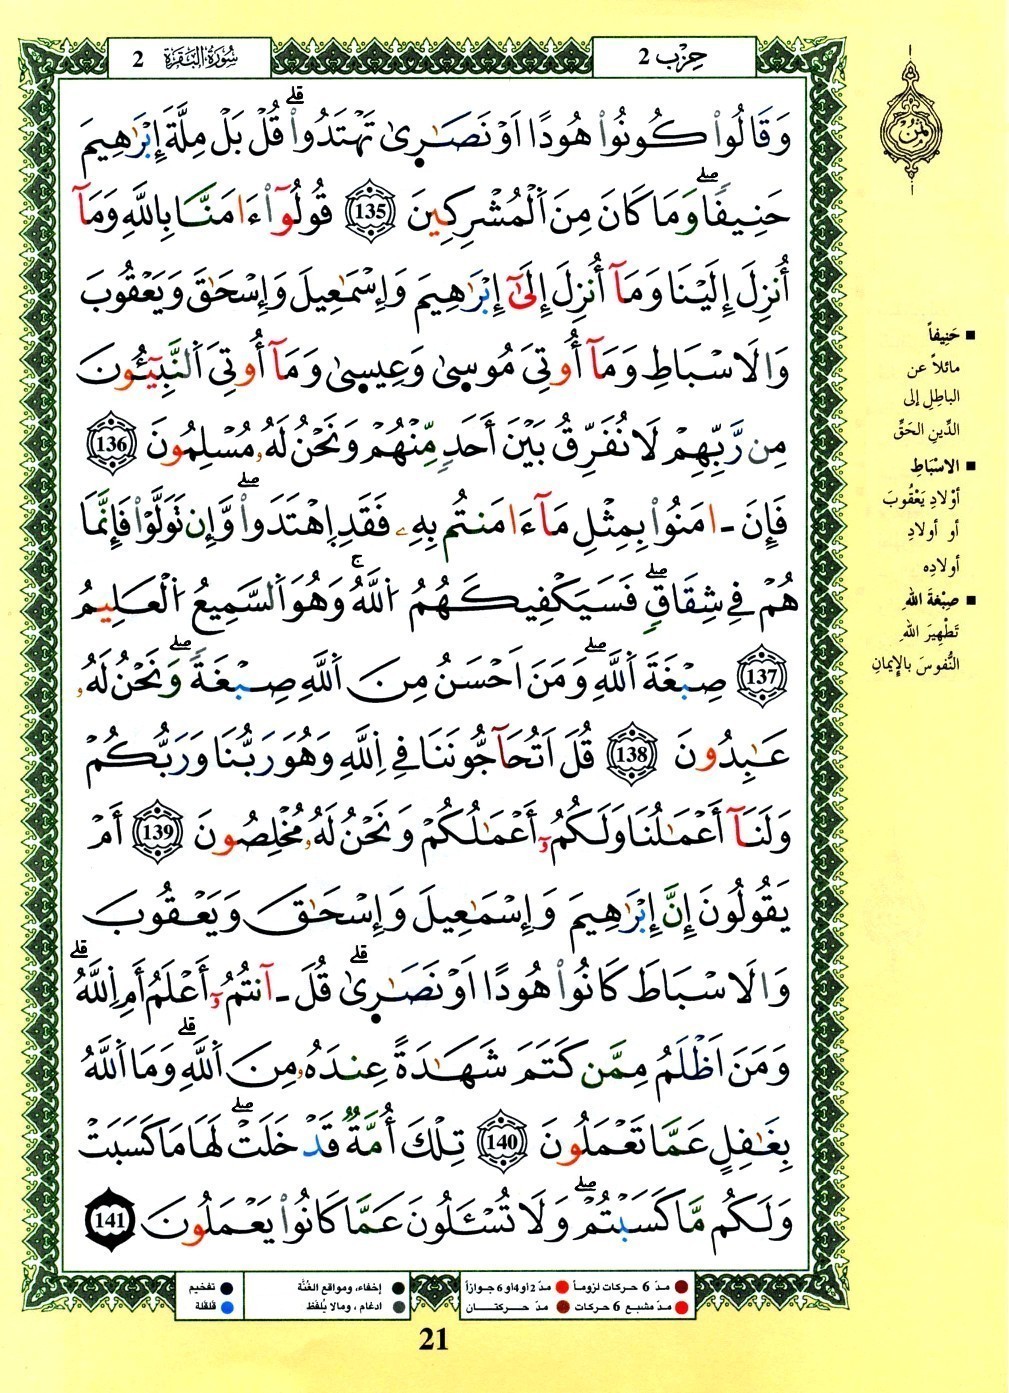 سُورَةُ البَقَرَة 2
حِزْب 2
ثُمُن
وَقَالُواْ كُونُواْ هُودًا اَوْ نَصَٰرِىٰ تَهْتَدُواْ قُلْ بَلْ مِلَّةَ إِبْرَٰهِيمَ
حَنِيفًا وَمَا كَانَ مِنَ اَلْمُشْرِكِينَ 135 قُولُوٓاْ ءَامَنَّا بِاللَّهِ وَمَآ
أُنزِلَ إِلَيْنَا وَمَآ أُنزِلَ إِلَىٰٓ إِبْرَٰهِيمَ وَإِسْمَٰعِيلَ وَإِسْحَٰقَ وَيَعْقُوبَ
وَالَاسْبَاطِ وَمَآ أُوتِىَ مُوسِىٰ وَعِيسِىٰ وَمَآ أُوتِىَ اَلنَّبِيٓـُٔونَ
مِن رَّبِّهِمْ لَا نُفَرِّقُ بَيْنَ أَحَدٍ مِّنْهُمْ وَنَحْنُ لَهُۥ مُسْلِمُونَ 136
فَإِنَ ـ امَنُواْ بِمِثْلِ مَآ ءَامَنتُم بِهِۦ فَقَدِ اِهْتَدَواْ وَّإِن تَوَلَّوْاْ فَإِنَّمَا
هُمْ فِے شِقَاقٍ فَسَيَكْفِيكَهُمُ اُللَّهُ وَهُوَ اَلسَّمِيعُ اُلْعَلِيمُ
137 صِبْغَةَ اَللَّهِ وَمَنَ اَحْسَنُ مِنَ اَللَّهِ صِبْغَةً وَنَحْنُ لَهُۥ
عَٰبِدُونَ 138 قُلَ اَتُحَآجُّونَنَا فِے اِللَّهِ وَهُوَ رَبُّنَا وَرَبُّكُمْ
وَلَنَآ أَعْمَٰلُنَا وَلَكُمُۥٓ أَعْمَٰلُكُمْ وَنَحْنُ لَهُۥ مُخْلِصُونَ 139 أَمْ
يَقُولُونَ إِنَّ إِبْرَٰهِيمَ وَإِسْمَٰعِيلَ وَإِسْحَٰقَ وَيَعْقُوبَ
وَالَاسْبَاطَ كَانُواْ هُودًا اَوْ نَصَٰرِىٰ قُلَ ـ آنتُمُۥٓ أَعْلَمُ أَمِ اِللَّهُ
وَمَنَ اَظْلَمُ مِمَّن كَتَمَ شَهَٰدَةً عِندَهُۥ مِنَ اَللَّهِ وَمَا اَللَّهُ
بِغَٰفِلٍ عَمَّا تَعْمَلُونَ 140 تِلْكَ أُمَّةٌ قَدْ خَلَتْ لَهَا مَا كَسَبَتْ
وَلَكُم مَّا كَسَبْتُمْ وَلَا تُسْـَٔلُونَ عَمَّا كَانُواْ يَعْمَلُونَ 141
■ حَنِيفاً
مائلاً عن
الباطِلِ إلى
الدِّينِ الحَقِّ
■ الاسْبَاطِ
أوْلادِ يَعْقُوبَ
أو أولادِ
أولادِه
■ صِبْغَةَ اللهِ
تَطْهِيرَ اللهِ
النُّفوسَ بالإيمانِ
مدّ 6 حركات لزوماً
مدّ 2 أو 4 أو 6 جوازاً
إخفاء، ومواقع الغُنَّة
تفخيم
مدّ مشبع 6 حركات
مدّ حركتان
ادغام، ومالا يُلفَظ
قلقلة
21